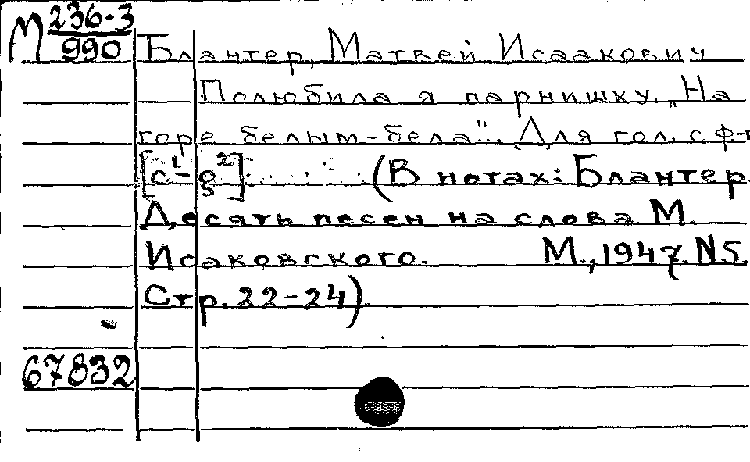 М 236-3
990 Блантер, Матвей Исаакович
Полюбила я парнишку. „На
горе белым-бела". Для гол. с ф-п
[c¹-g²]. (В нотах: Блантер
Десять песен на слова М.
Исаковского. М., 1947. N5.
Стр. 22-24)
67832